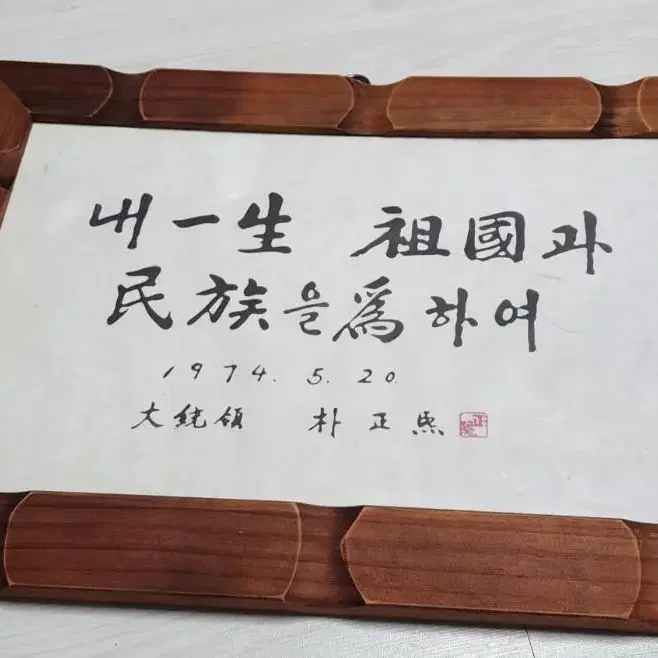 내 一生 祖國과
民族을 爲하여
1974. 5. 20.
大統領 朴正熙
正熙